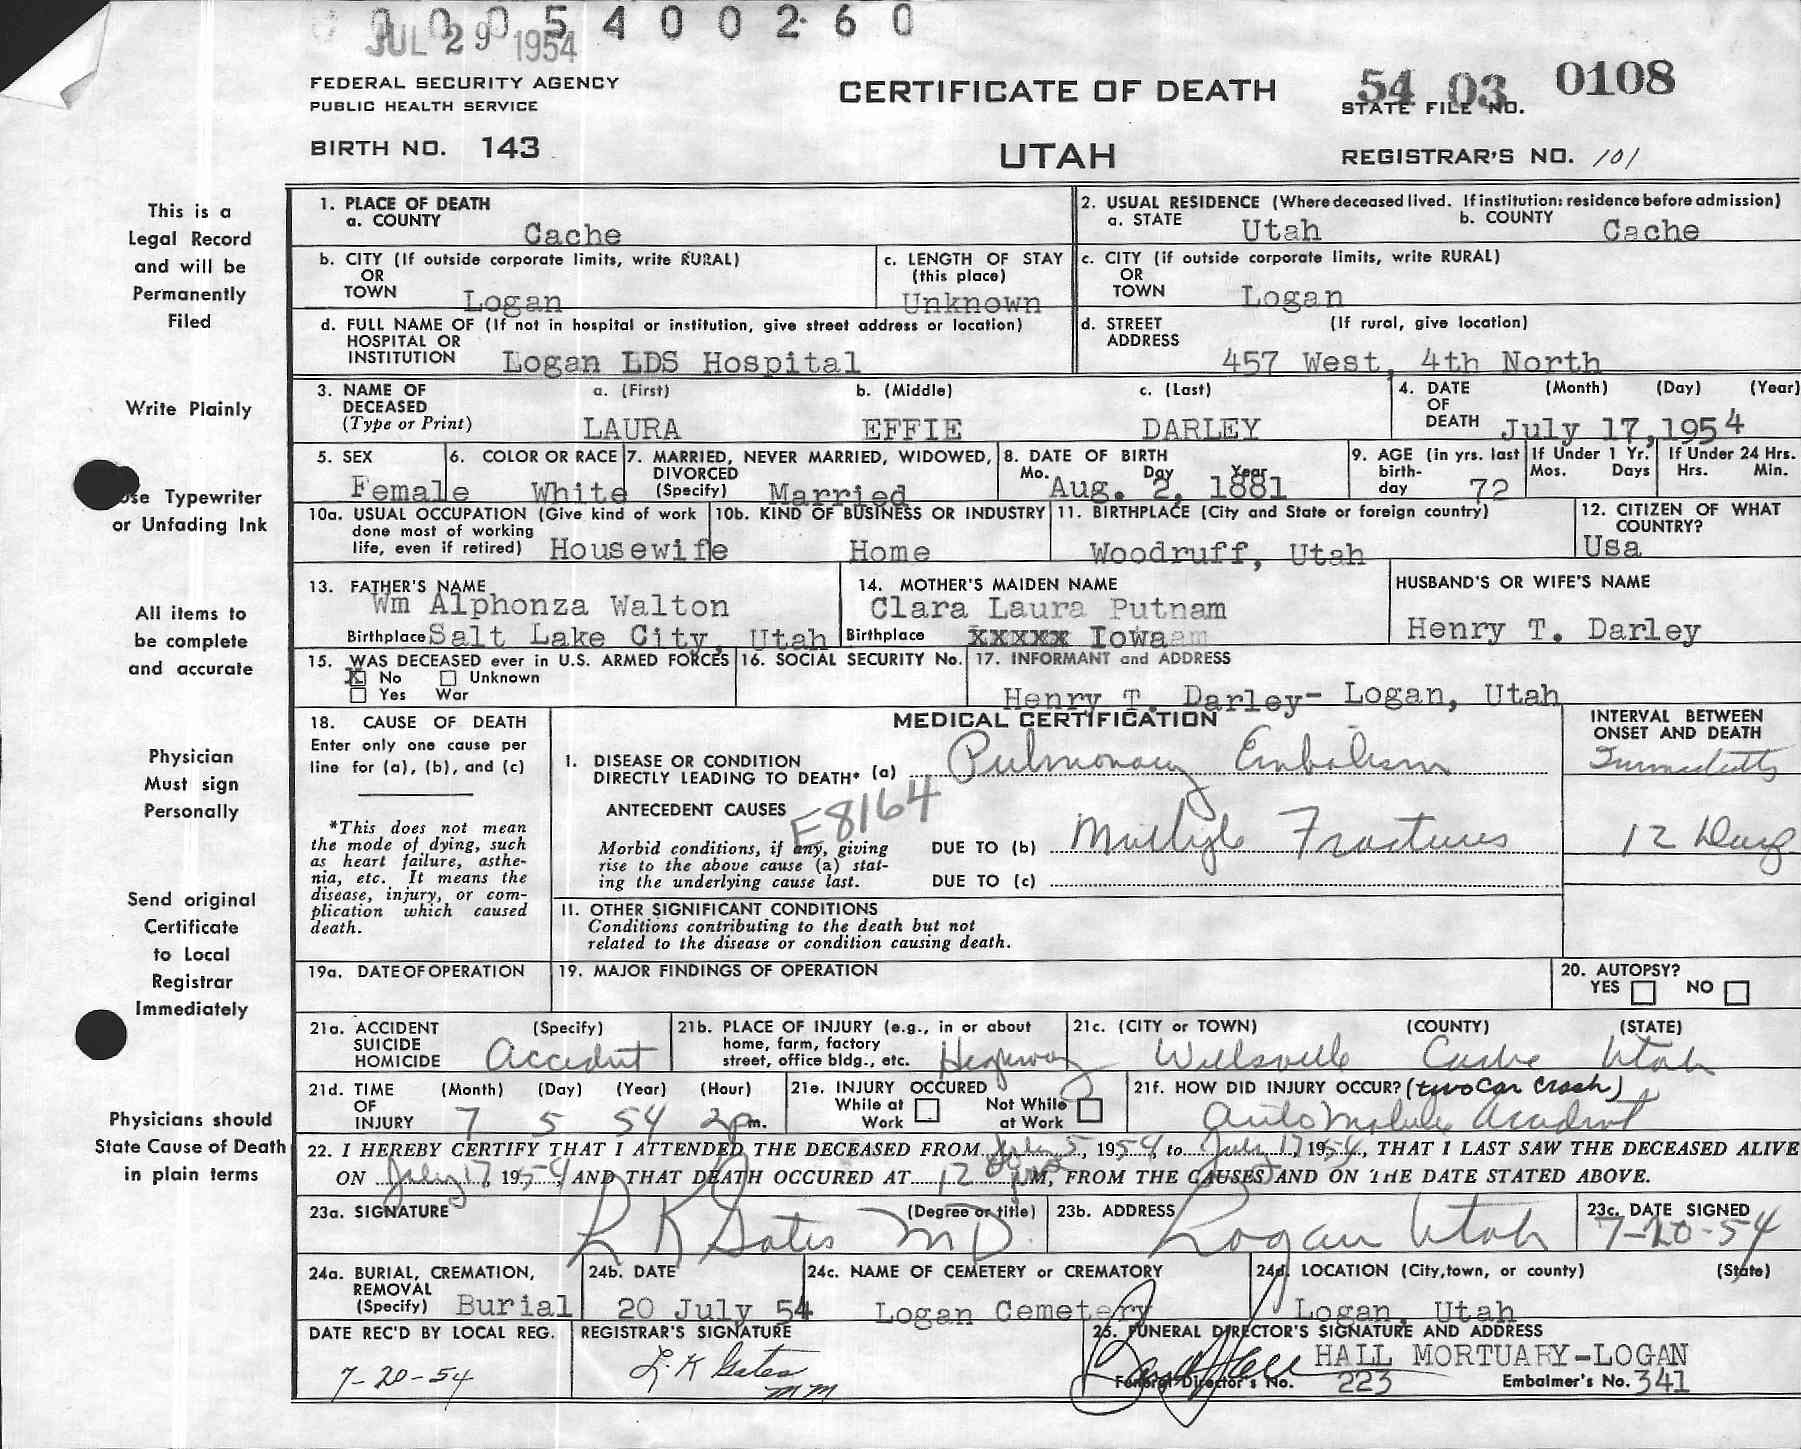 0005400260
JUL 29 1954
FEDERAL SECURITY AGENCY
PUBLIC HEALTH SERVICE
CERTIFICATE OF DEATH
54 03 0108
STATE FILE NO.
BIRTH NO. 143
UTAH
REGISTRAR'S NO. 101
This is a
Legal Record
and will be
Permanently
Filed
Write Plainly
Use Typewriter
or Unfading Ink
All items to
be complete
and accurate
Physician
Must sign
Personally
Send original
Certificate
to Local
Registrar
Immediately
Physicians should
State Cause of Death
in plain terms
1. PLACE OF DEATH
a. COUNTY Cache
2. USUAL RESIDENCE (Where deceased lived. If institution: residence before admission)
a. STATE Utah b. COUNTY Cache
b. CITY (If outside corporate limits, write RURAL)
OR
TOWN Logan
c. LENGTH OF STAY
(this place)
Unknown
c. CITY (if outside corporate limits, write RURAL)
OR
TOWN Logan
d. FULL NAME OF (If not in hospital or institution, give street address or location)
HOSPITAL OR
INSTITUTION Logan LDS Hospital
d. STREET (If rural, give location)
ADDRESS
457 West, 4th North
3. NAME OF DECEASED (Type or Print)
a. (First) b. (Middle) c. (Last)
LAURA EFFIE DARLEY
4. DATE OF DEATH (Month) (Day) (Year)
July 17,1954
5. SEX
Female
6. COLOR OR RACE
White
7. MARRIED, NEVER MARRIED, WIDOWED,
DIVORCED
(Specify) Married
8. DATE OF BIRTH
Mo. Day Year
Aug. 2, 1881
9. AGE (in yrs. last
birth-
day 72
If Under 1 Yr.
Mos. Days
If Under 24 Hrs.
Hrs. Min.
10a. USUAL OCCUPATION (Give kind of work
done most of working
life, even if retired) Housewife
10b. KIND OF BUSINESS OR INDUSTRY
Home
11. BIRTHPLACE (City and State or foreign country)
Woodruff, Utah
12. CITIZEN OF WHAT
COUNTRY?
Usa
13. FATHER'S NAME
Wm Alphonza Walton
Birthplace Salt Lake City, Utah
14. MOTHER'S MAIDEN NAME
Clara Laura Putnam
Birthplace xxxxx Iowa
HUSBAND'S OR WIFE'S NAME
Henry T. Darley
15. WAS DECEASED ever in U.S. ARMED FORCES
X No Unknown
Yes War
16. SOCIAL SECURITY No.
17. INFORMANT and ADDRESS
Henry T. Darley- Logan, Utah
18. CAUSE OF DEATH
Enter only one cause per
line for (a), (b), and (c)
*This does not mean
the mode of dying, such
as heart failure, asthe-
nia, etc. It means the
disease, injury, or com-
plication which caused
death.
MEDICAL CERTIFICATION
INTERVAL BETWEEN
ONSET AND DEATH
1. DISEASE OR CONDITION
DIRECTLY LEADING TO DEATH* (a) Pulmonary Embolism
ANTECEDENT CAUSES
E8164
Morbid conditions, if any, giving
rise to the above cause (a) stat-
ing the underlying cause last.
DUE TO (b) Multiple Fractures 12 Days
DUE TO (c)
11. OTHER SIGNIFICANT CONDITIONS
Conditions contributing to the death but not
related to the disease or condition causing death.
19a. DATE OF OPERATION
19. MAJOR FINDINGS OF OPERATION
20. AUTOPSY?
YES NO
21a. ACCIDENT (Specify)
SUICIDE
HOMICIDE Accident
21b. PLACE OF INJURY (e.g., in or about
home, farm, factory
street, office bldg., etc. Highway
21c. (CITY or TOWN) (COUNTY) (STATE)
Wellsville Cache Utah
21d. TIME OF INJURY (Month) (Day) (Year) (Hour)
7 5 54 2pm.
21e. INJURY OCCURED
While at Work Not While at Work
21f. HOW DID INJURY OCCUR? (two car crash)
Automobile Accident
22. I HEREBY CERTIFY THAT I ATTENDED THE DECEASED FROM July 5, 1954, to July 17, 1954, THAT I LAST SAW THE DECEASED ALIVE
ON July 17, 1954, AND THAT DEATH OCCURED AT 12 pM, FROM THE CAUSES AND ON THE DATE STATED ABOVE.
23a. SIGNATURE (Degree or title)
L K Gates MD.
23b. ADDRESS
Logan Utah
23c. DATE SIGNED
7-20-54
24a. BURIAL, CREMATION,
REMOVAL
(Specify) Burial
24b. DATE
20 July 54
24c. NAME OF CEMETERY or CREMATORY
Logan Cemetery
24d. LOCATION (City, town, or county) (State)
Logan, Utah
DATE REC'D BY LOCAL REG.
7-20-54
REGISTRAR'S SIGNATURE
L. K Gates
mm
25. FUNERAL DIRECTOR'S SIGNATURE AND ADDRESS
HALL MORTUARY-LOGAN
Funeral Director's No. 223 Embalmer's No. 341